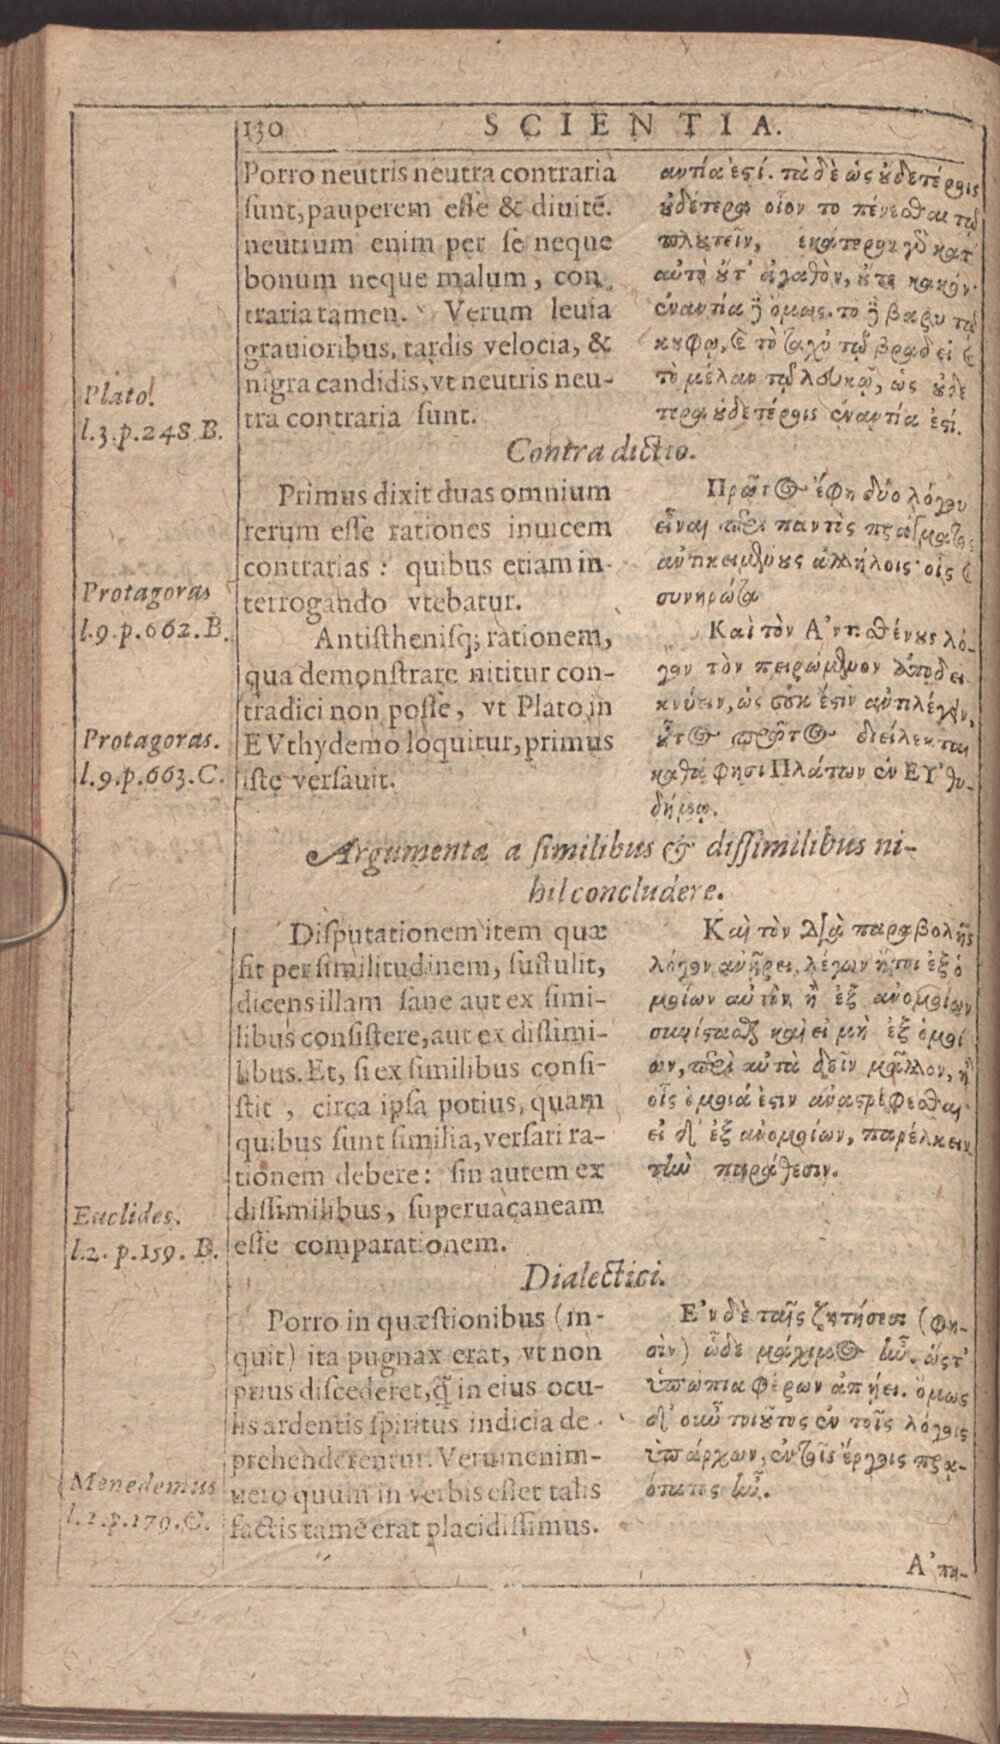 130 SCIENTIA.
Porro neutris neutra contraria
sunt, pauperem esse & diuitē.
neutium enim per se neque
bonum neque malum, con
traria tamen. Verum leuia
grauioribus, tardis velocia, &
nigra candidis, vt neutris neu-
tra contraria sunt.
αντία ἐςί. τὰ δὲ ὡς ȣ̓δετέροις
ȣ̓δέτερα οἷον το πένεσθαι τῷ
πλȣτεῖν, ἑκάτερον γὸ κατ'
αὑτὸ ȣ̓τ' ἀγαθὸν, ȣ̓τε κακόν·
ἐναντία ἢ ὅμως. το ἢ βαρυ τῷ
κȣφῳ, & τὸ ταχὺ τῷ βραδεῖ &
τὸ μέλαν τῷ λουκῷ, ὡς ȣ̓δε
τερα ȣ̓δετέροις ἐναντία ἐςί.
Plato.
l.3.p.248 B.
Contradictio.
Primus dixit duas omnium
rerum esse rationes inuicem
contrarias: quibus etiam in-
terrogando vtebatur.
Πρῶτος ἔφη δύο λόγου
εἶναι περὶ παντὸς πράγματος
αντικειμένους ἀλλήλοις· οἷς &
συνηρώτα
Protagoras
l.9.p.662.B.
Antisthenisq; rationem,
qua demonstrare nititur con-
tradici non posse, vt Plato in
EVthydemo loquitur, primus
iste versauit.
Καὶ τὸν Α'ντιθένȣς λό-
γον τὸν πειρώμενον ἀποδει
κνύειν, ὡς σὐκ ἔςιν αὐτιλέγειν,
ȣ̓τος πρῶτος διείλεκται
καθά φησι Πλάτων ἐν ΕΥ'θυ-
δήμῳ.
Protagoras.
l.9.p.663.C.
Argumenta a similibus & dissimilibus ni-
hil concludere.
Disputationem item quæ
fit per similitudinem, sustulit,
dicens illam sane aut ex simi-
libus consistere, aut ex dissimi-
libus. Et, si ex similibus consi-
stit, circa ipsa potius, quam
quibus sunt similia, versari ra-
tionem debere: sin autem ex
dissimilibus, superuacaneam
esse comparationem.
Καὶ τὸν Διὰ παραβολῆς
λόγον ἀνῄρει, λέγων ἤτοι ἐξ ὁ
μοίων αὐτὸν ἢ ἐξ ἀνομοίων
συνίςασθαι καὶ εἰ μὴ ἐξ ὁμοί
ων, περὶ αὐτὰ δεῖν μᾶλλον, ἢ
οἷς ὅμοιά ἐςιν ἀναςρέφεσθαι·
εἰ δ' ἐξ ἀνομοίων, παρέλκειν
τὴν παράθεσιν.
Euclides.
l.2. p.159. B.
Dialectici.
Porro in quæstionibus (in-
quit) ita pugnax erat, vt non
prius discederet, q̃ in eius ocu-
lis ardentis spiritus indicia de
prehenderentur. Verumenim-
uero quum in verbis esset talis
factis tamē erat placidissimus.
Ε'ν δὲ ταῖς ζητήσεσι (φη-
σὶν) ὧδε μάχιμος ἦν. ὥςτ'
ὑπωπια φέρων ἀπῄει. ὅμως
δ' οὖν τοιȣ̃τος ἐν τοῖς λόγοις
ὑπάρχων, ἐν τοῖς ἔργοις πρα-
ότατος ἦν.
Menedemus
l.2.p.179.C.
Α'πη-